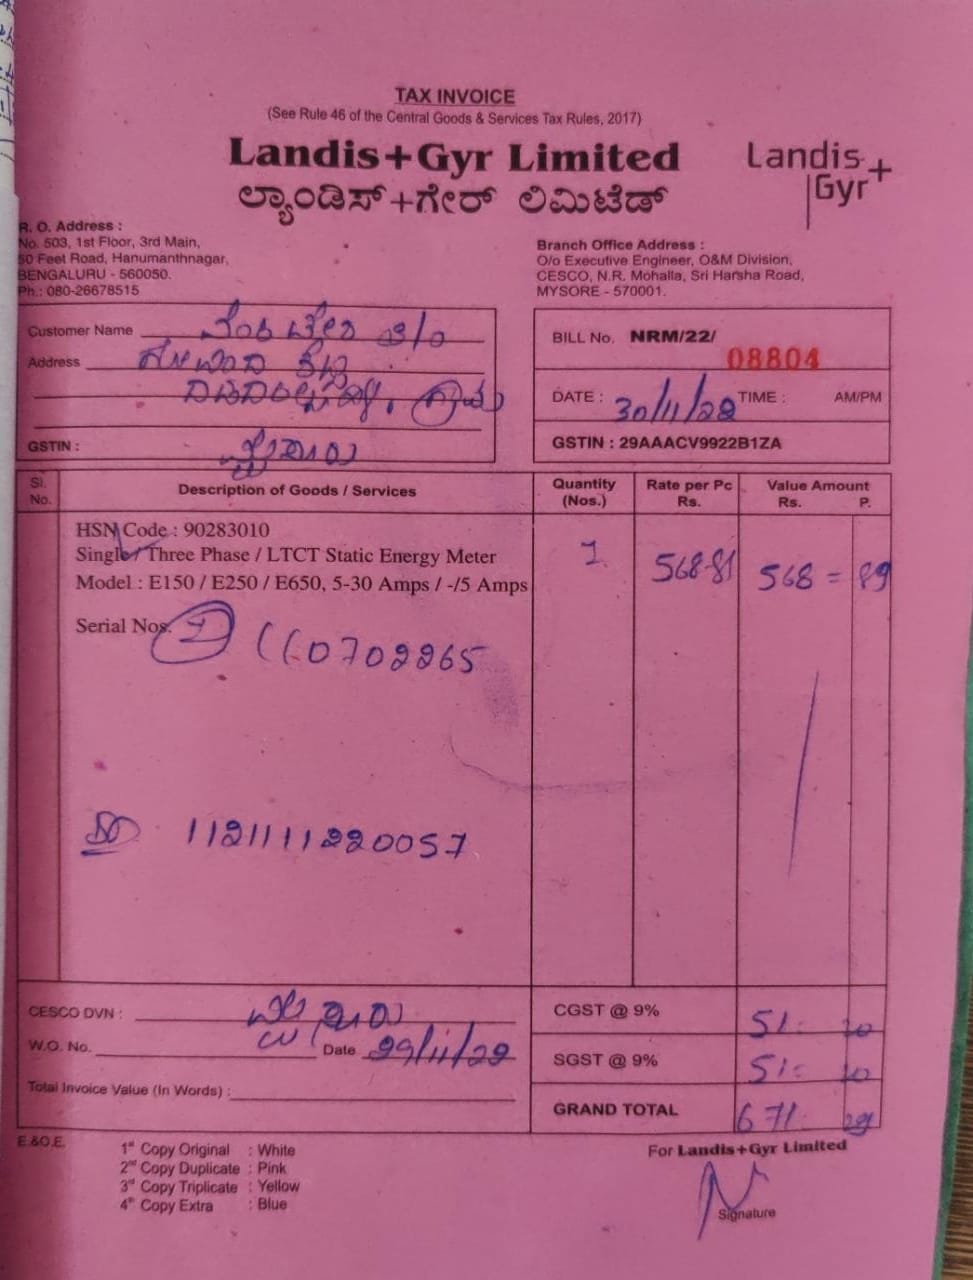 TAX INVOICE
(See Rule 46 of the Central Goods & Services Tax Rules, 2017)
Landis+Gyr Limited
ಲ್ಯಾಂಡಿಸ್+ಗೇರ್ ಲಿಮಿಟೆಡ್
Landis+
Gyr
R. O. Address :
No. 503, 1st Floor, 3rd Main,
50 Feet Road, Hanumanthnagar,
BENGALURU - 560050.
Ph.: 080-26678515
Branch Office Address :
O/o Executive Engineer, O&M Division,
CESCO, N.R. Mohalla, Sri Harsha Road,
MYSORE - 570001.
Customer Name
Address
GSTIN :
BILL No. NRM/22/
08804
DATE : 30/11/22 TIME : AM/PM
GSTIN : 29AAACV9922B1ZA
Sl. No. Description of Goods / Services Quantity (Nos.) Rate per Pc Rs. Value Amount Rs. P.
HSN Code : 90283010
Single / Three Phase / LTCT Static Energy Meter 1 568-81 568 = 89
Model : E150 / E250 / E650, 5-30 Amps / -/5 Amps
Serial Nos.
1121111220057
CESCO DVN :
W.O. No. Date 29/11/22
Total Invoice Value (In Words) :
CGST @ 9% 51 20
SGST @ 9% 51 20
GRAND TOTAL 671 29
E.&O.E.
1st Copy Original : White
2nd Copy Duplicate : Pink
3rd Copy Triplicate : Yellow
4th Copy Extra : Blue
For Landis+Gyr Limited
Signature